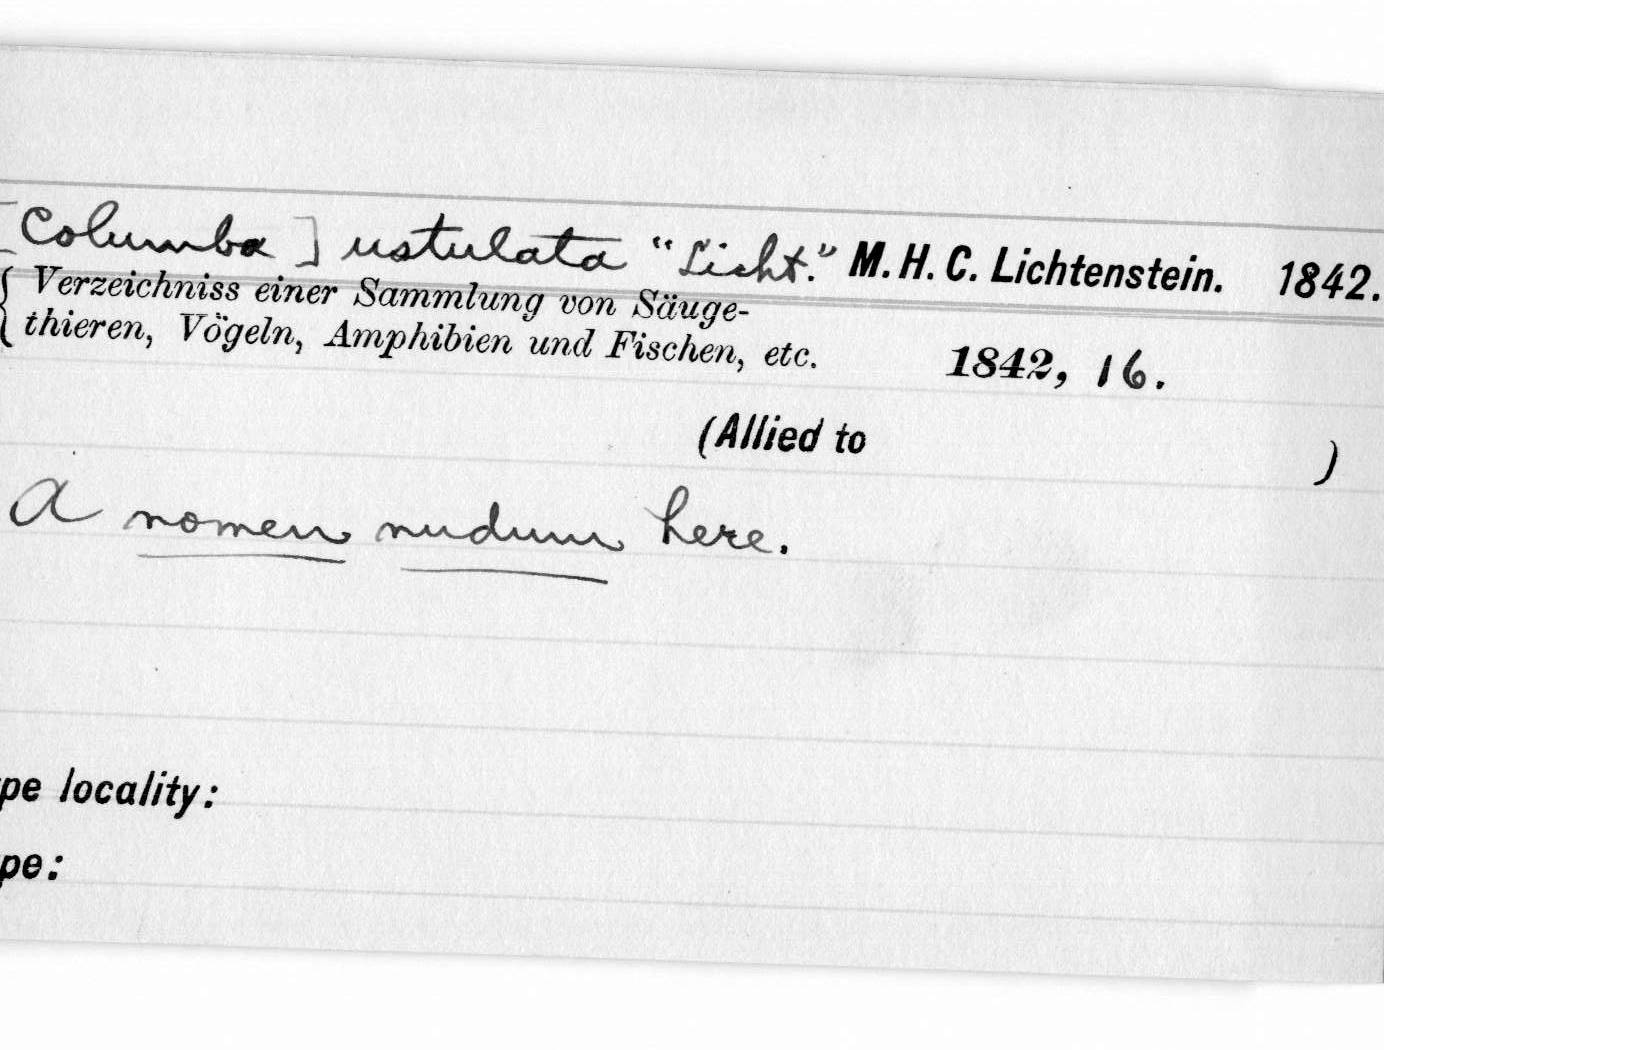 [Columba] ustulata “Licht.” M. H. C. Lichtenstein. 1842.
{ Verzeichniss einer Sammlung von Säuge-
thieren, Vögeln, Amphibien und Fischen, etc. 1842, 16.
(Allied to )
A nomen nudum here.
pe locality:
pe: